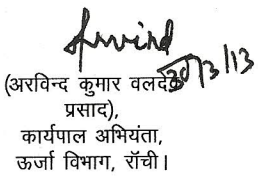 Arvind
30/3/13
(अरविन्द कुमार वलदेव
प्रसाद),
कार्यपाल अभियंता,
ऊर्जा विभाग, राँची।